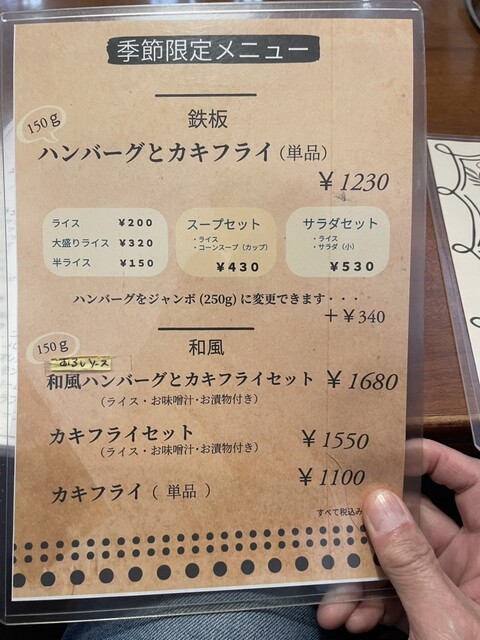 季節限定メニュー
鉄板
150g
ハンバーグとカキフライ(単品)
¥1230
ライス ¥200
大盛りライス ¥320
半ライス ¥150
スープセット
・ライス
・コーンスープ(カップ)
¥430
サラダセット
・ライス
・サラダ(小)
¥530
ハンバーグをジャンボ(250g)に変更できます・・・
+¥340
和風
150g
おろしソース
和風ハンバーグとカキフライセット ¥1680
(ライス・お味噌汁・お漬物付き)
カキフライセット ¥1550
(ライス・お味噌汁・お漬物付き)
カキフライ(単品) ¥1100
すべて税込み